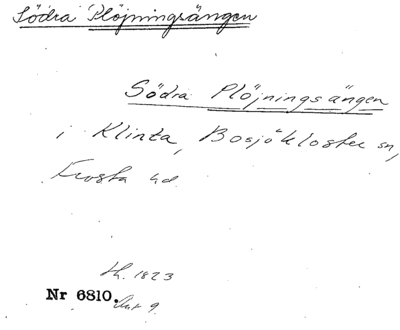 Södra Plöjningsängen
Södra Plöjningsängen
i Klinta, Bosjökloster sn,
Frosta hd.
1823
Nr 6810. 9.